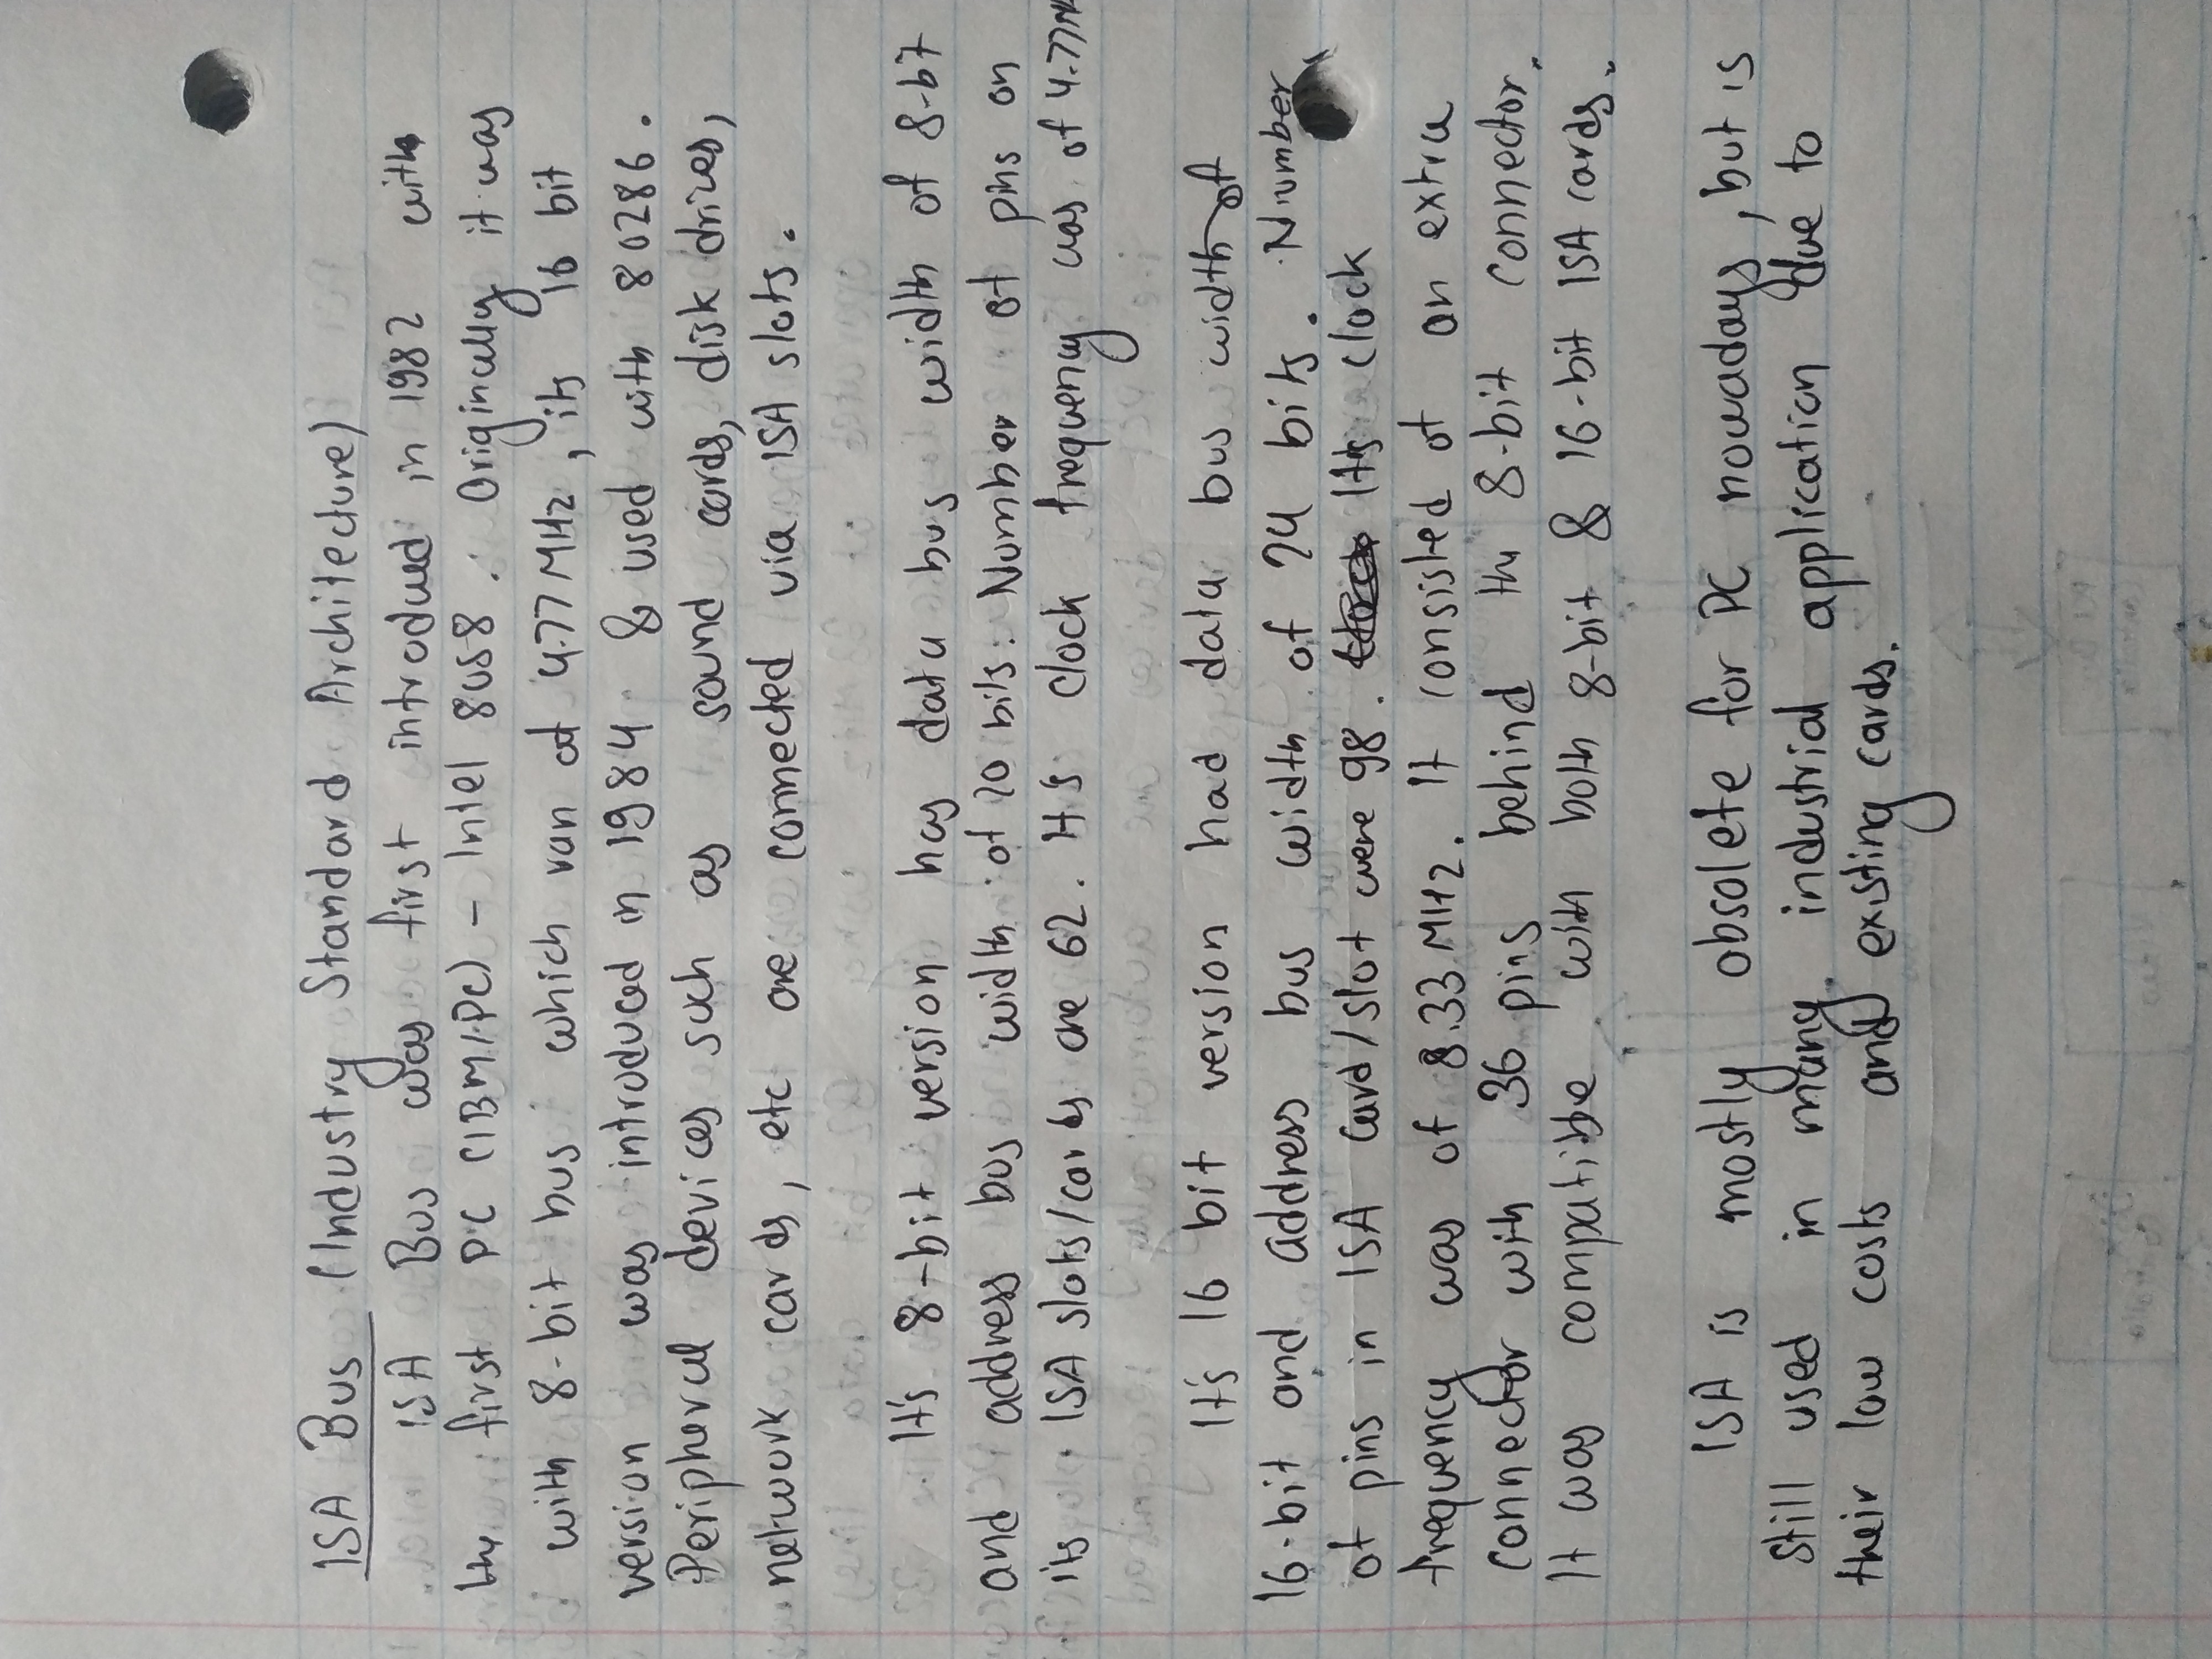 ISA Bus (Industry Standard Architecture)
ISA Bus was first introdued in 1982 with
the first PC (IBM/PC) - Intel 8088. Originally it was
with 8-bit bus which ran at 4.77 MHz, its 16 bit
version was introduced in 1984 & used with 80286.
Peripheral devices such as sound cards, disk drives,
network cards, etc are connected via ISA slots.
It's 8-bit version has data bus width of 8-bit
and address bus width of 20 bits. Number of pins on
its ISA slots/cards are 62. Its clock frequency was of 4.77M
It's 16 bit version had data bus width of
16-bit and address bus width of 24 bits. Number
of pins in ISA card/slot were 98. Its clock
frequency was of 8.33 MHz. It consisted of an extra
connector with 36 pins behind the 8-bit connector.
It was compatible with both 8-bit & 16-bit ISA cards.
ISA is mostly obsolete for PC nowadays, but is
still used in many industrial application due to
their low costs and existing cards.